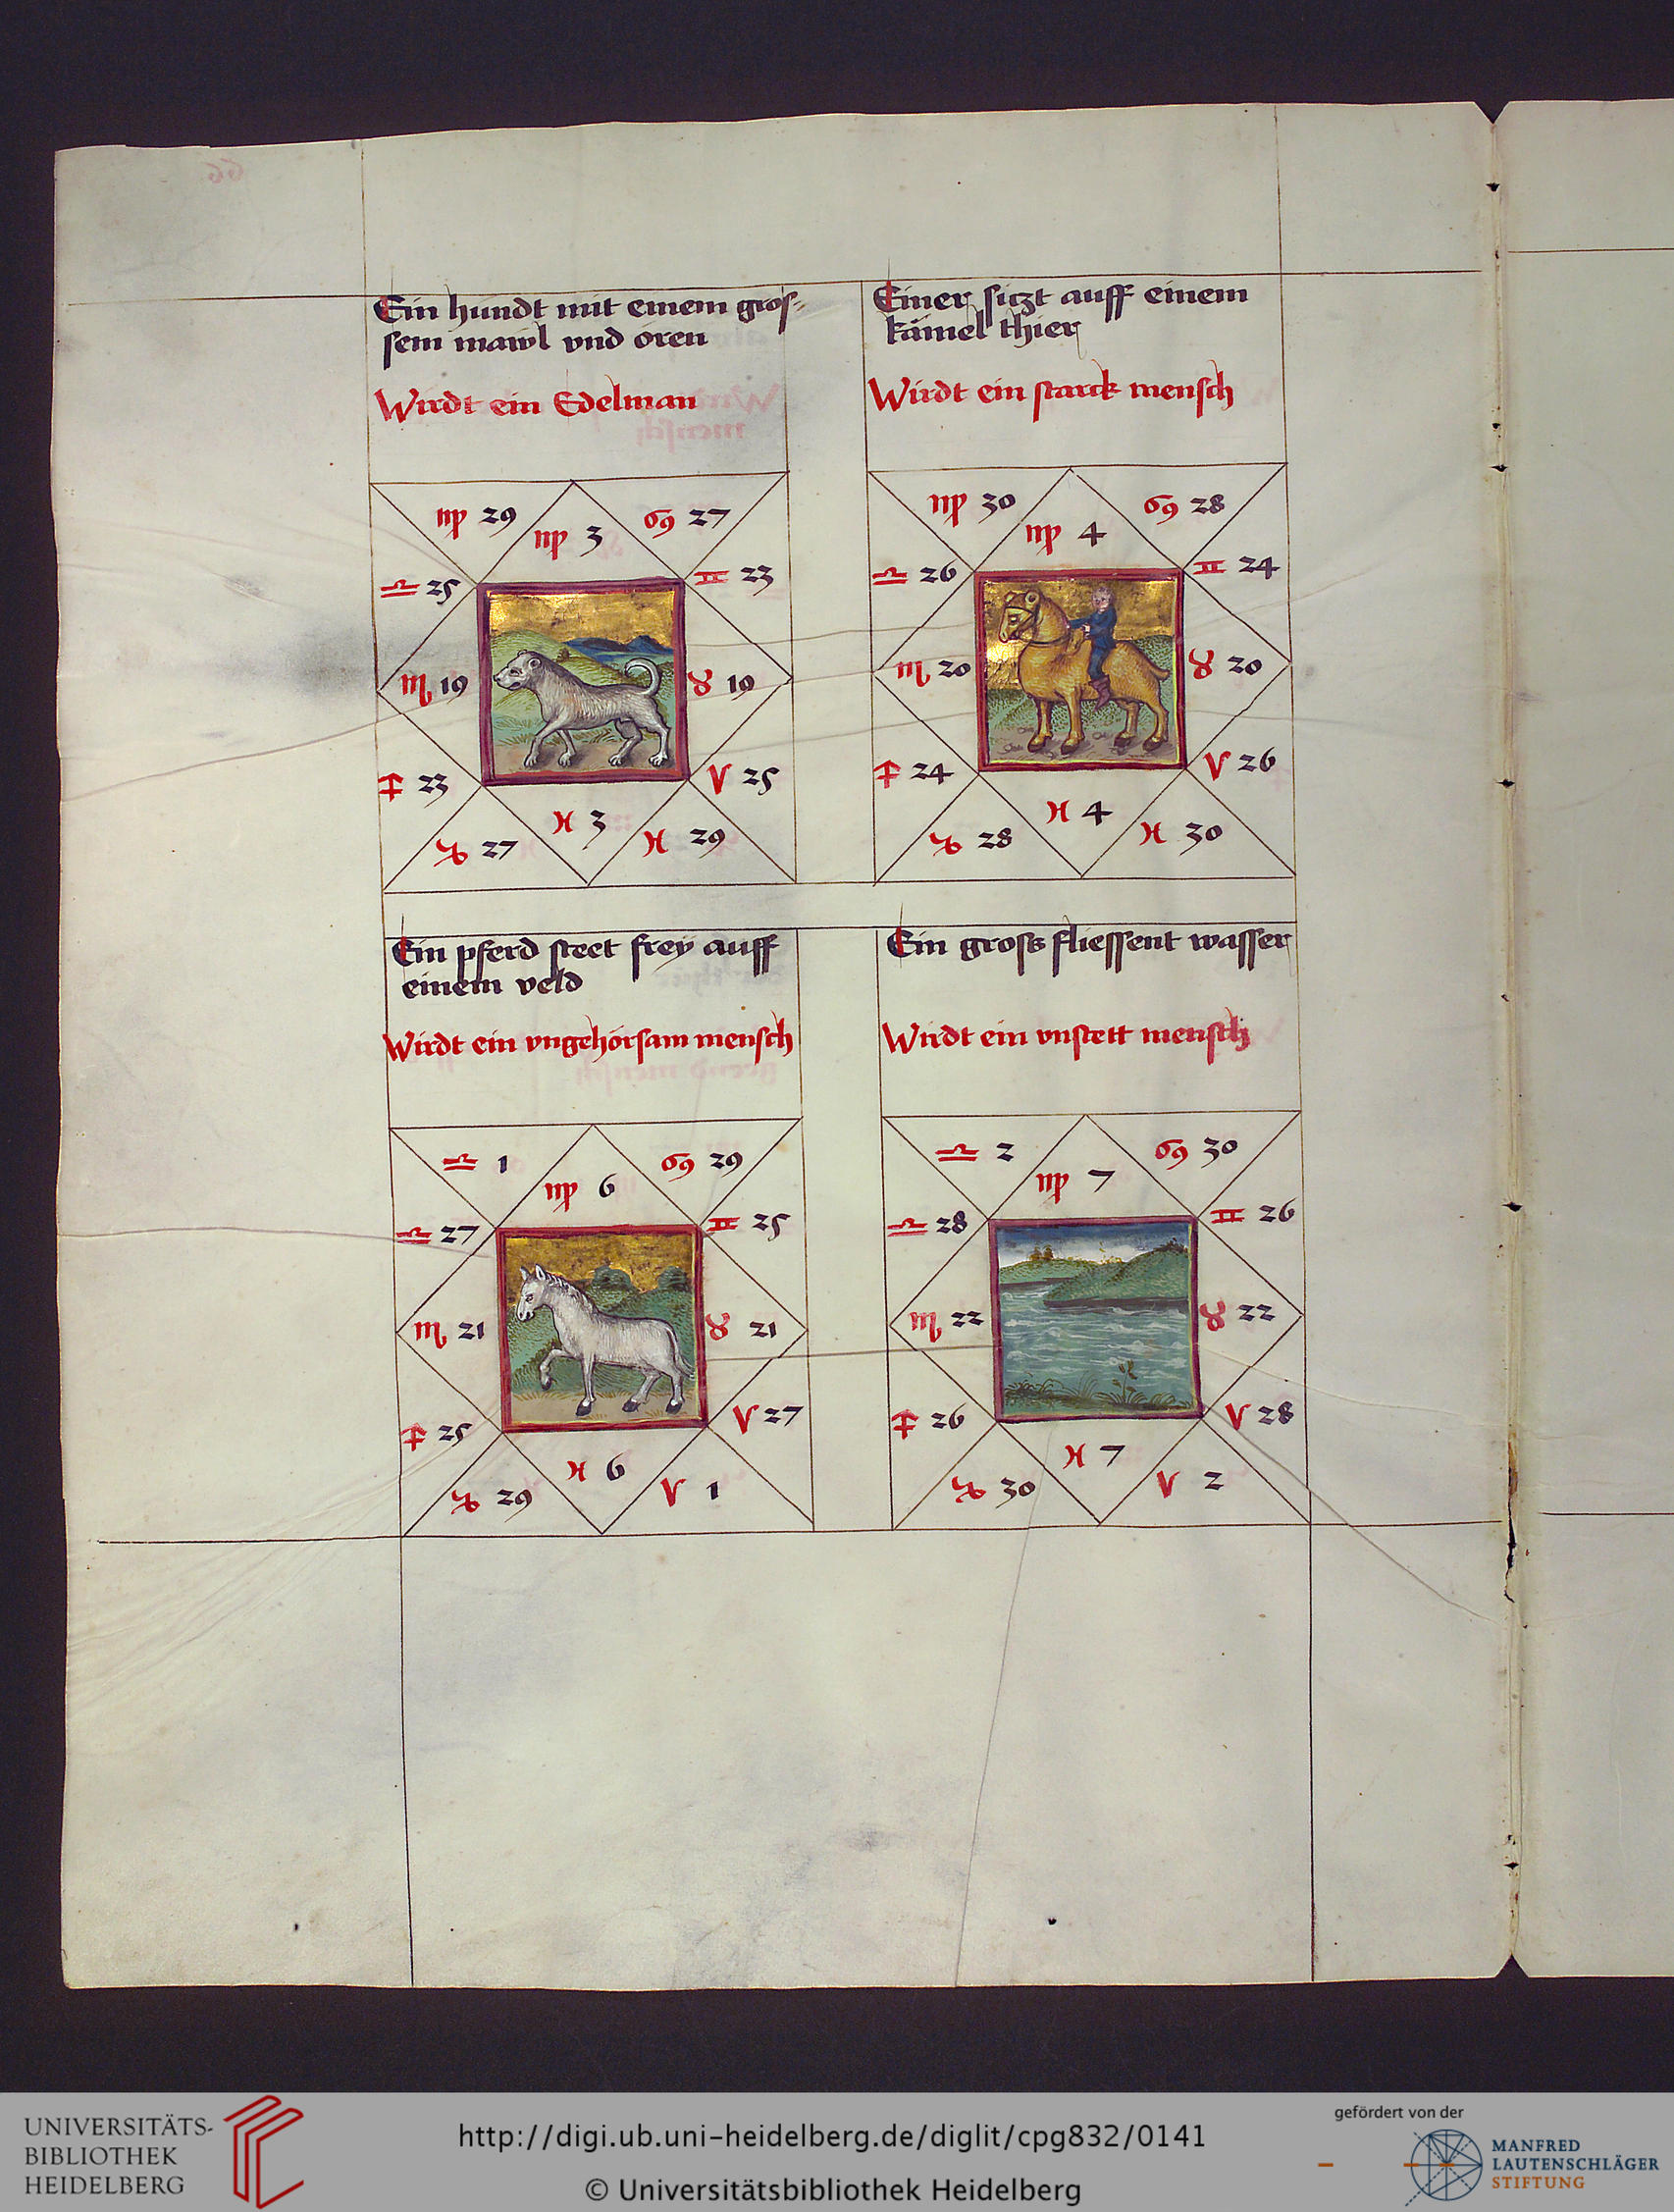 Ein hundt mit einem gros-
sem mawl vnd oren
Wirdt ein Edelman
♍ 29
♍ 3
♋ 27
♎ 25
♊ 23
♏ 19
♉ 19
♐ 23
♈ 25
♑ 27
♓ 3
♓ 29
Einer sitzt auff einem
kämel thier
Wirdt ein starck mensch
♍ 30
♍ 4
♋ 28
♎ 26
♊ 24
♏ 20
♉ 20
♐ 24
♈ 26
♑ 28
♓ 4
♓ 30
Ein pferd steet frey auff
einem veld
Wirdt ein vngehörsam mensch
♎ 1
♍ 6
♋ 29
♎ 27
♊ 25
♏ 21
♉ 21
♐ 25
♈ 27
♑ 29
♓ 6
♈ 1
Ein gross fliessent wasser
Wirdt ein vnstett mensch
♎ 2
♍ 7
♋ 30
♎ 28
♊ 26
♏ 22
♉ 22
♐ 26
♈ 28
♑ 30
♓ 7
♈ 2
UNIVERSITÄTS-
BIBLIOTHEK
HEIDELBERG
http://digi.ub.uni-heidelberg.de/diglit/cpg832/0141
© Universitätsbibliothek Heidelberg
gefördert von der
MANFRED
LAUTENSCHLÄGER
STIFTUNG